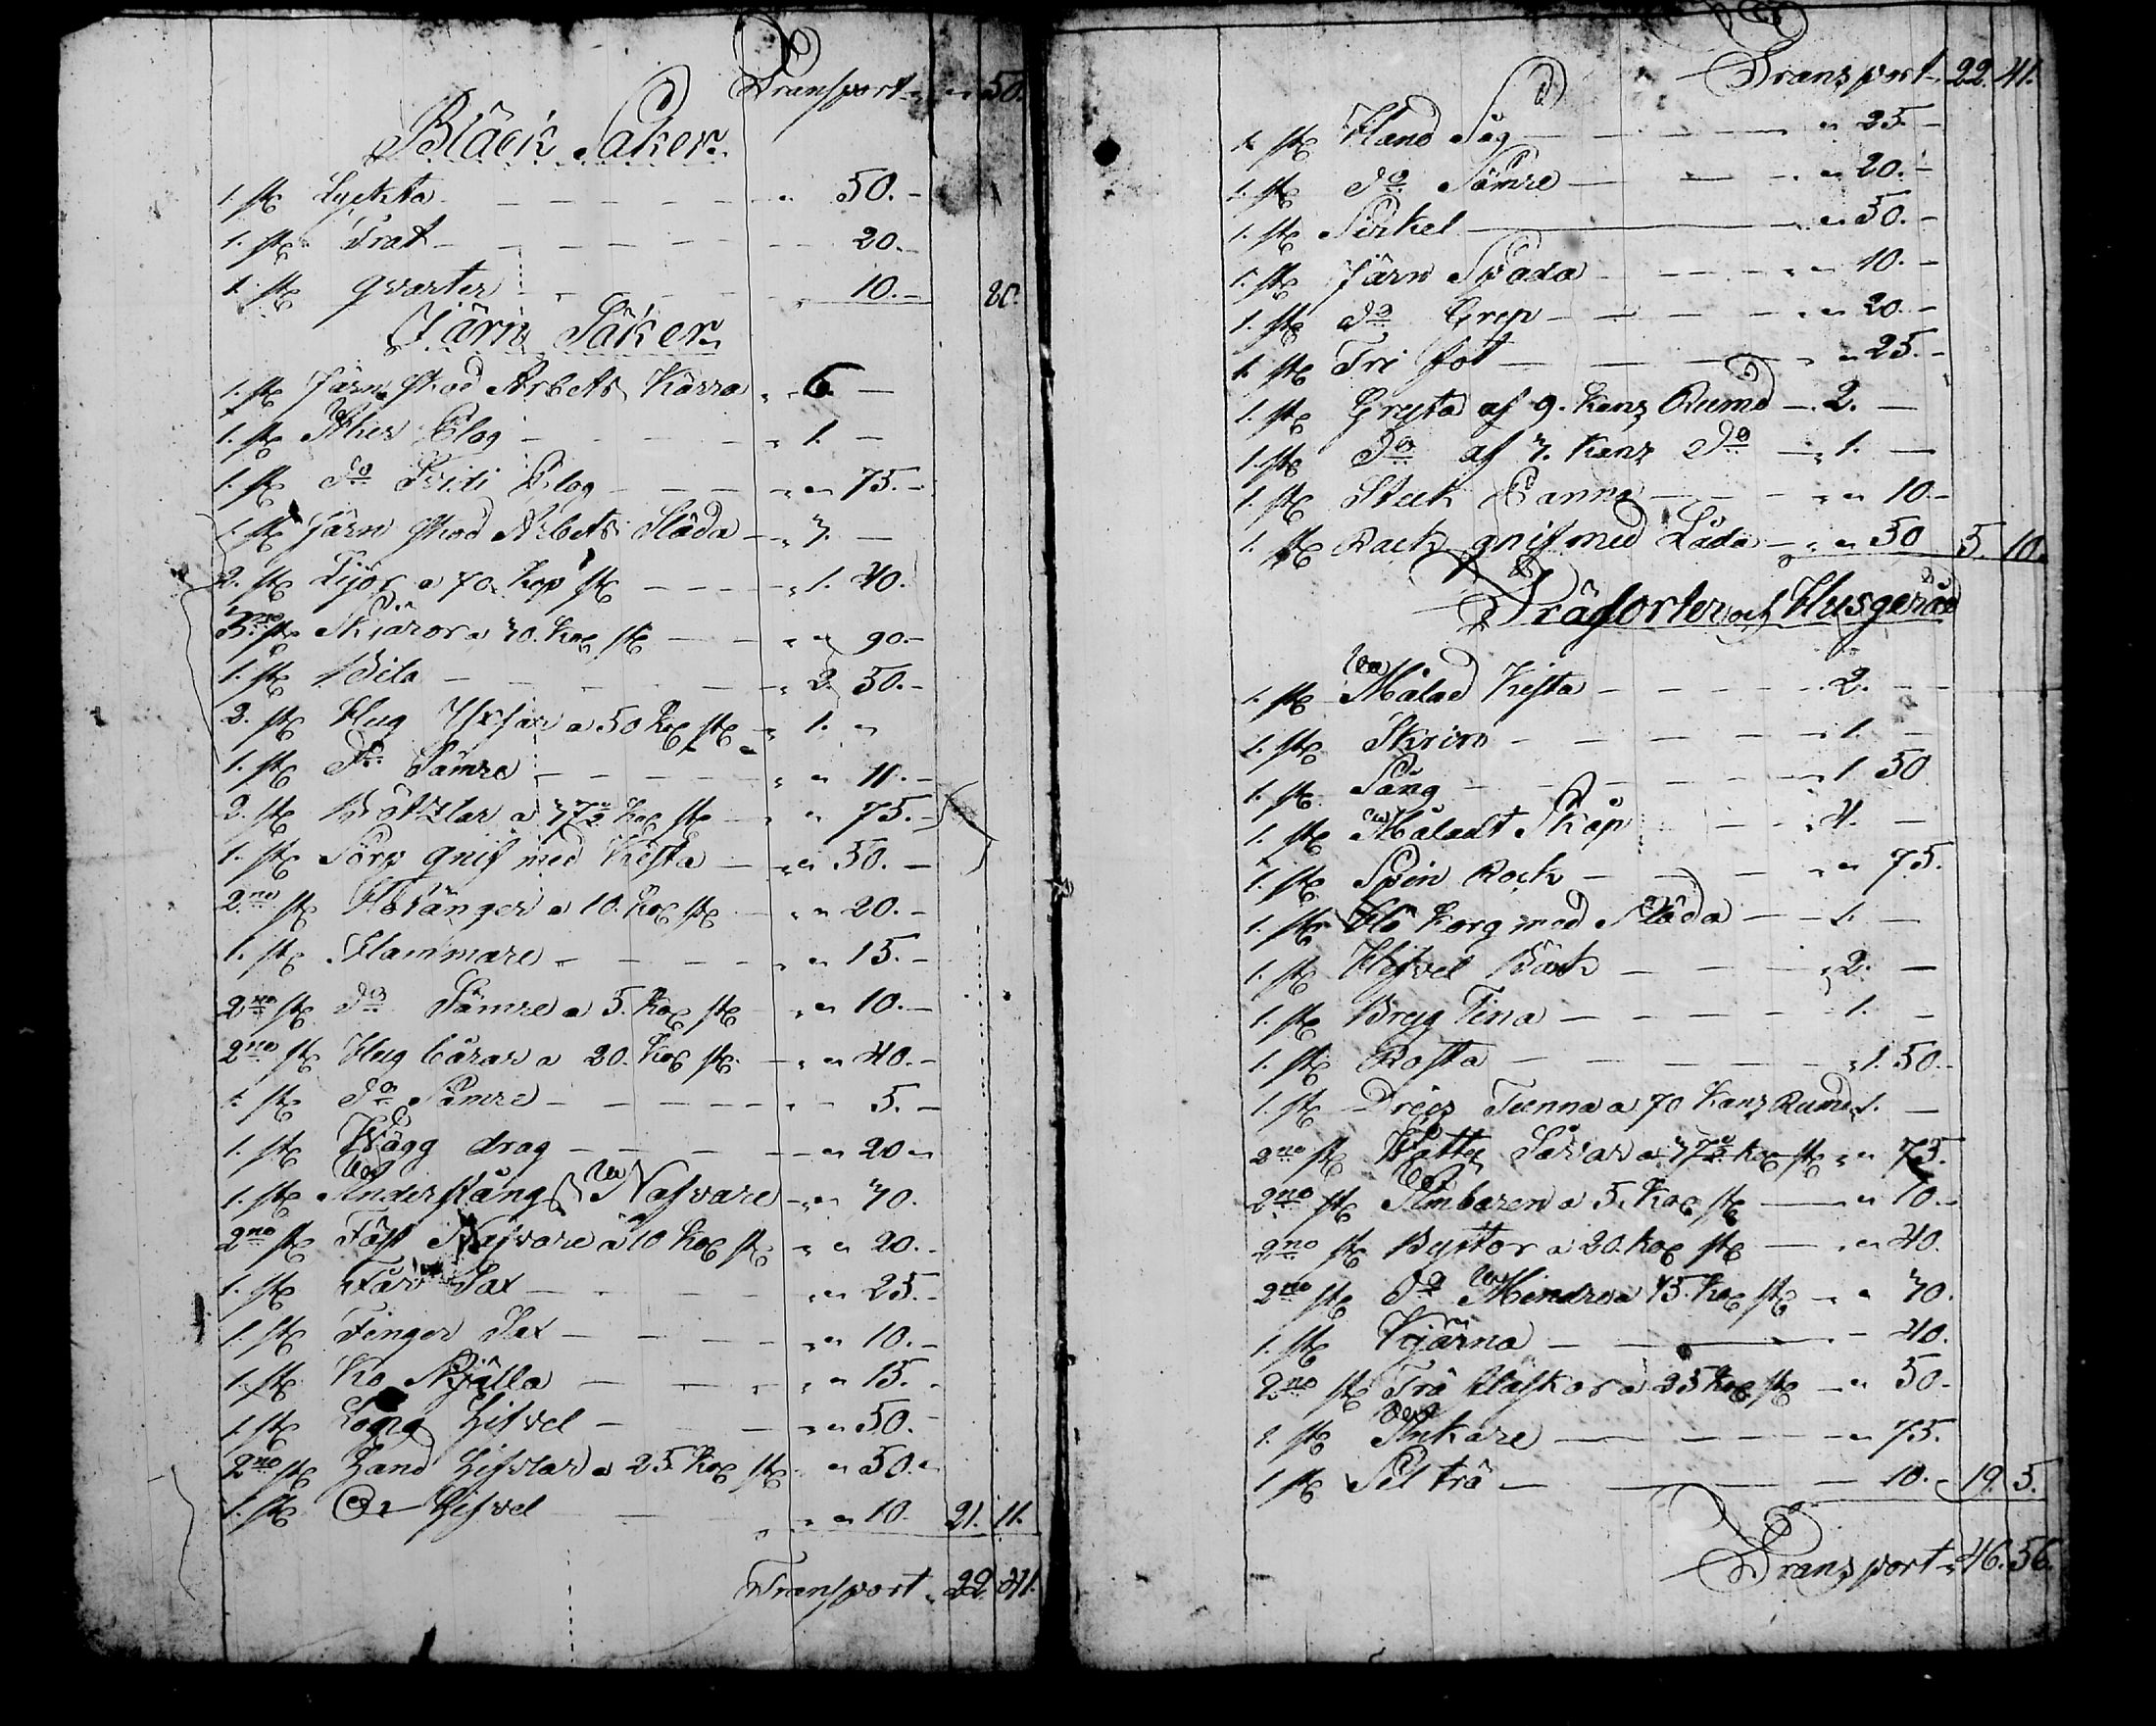 Transport " " 50.
Bläck Saker
1. st Lyckta " 50.
1. st Trat 20.
1. st qvarter " 10. 80.
Järn Saker
1. st Järn skod Arbets Kärra " 6. —
1. st Åker Plog " 1. —
1. st Do Svidi Plog " " 75.
1. st Järn skod Arbets Släda " 3. —
2. st Lijor a 70 kop st " 1. 40.
3. st Skiäror a 30. kop st " " 90.
1. st Bila " 2. 50.
2. st Hug Yxsar a 50 kop st " 1. "
1. st Do Sämre " " 11.
2. st Bötzlar a 37½ kop st " " 75.
1. st Sörp gnif med Kista " " 50.
2no st Hofänger a 10. kop st " " 20.
1. st Hammare " " 15.
2no st Do Sämre a 5. kop st " " 10.
2no st Hug Cärar a 20. kop st " " 40.
1. st Do Sämre " " 5.
1. st Wägg drag " 20 "
1. st Understångs Nafvare " " 30.
2no st Fäst Nafvare a 10 kop st " " 20.
1. st Får Sax " " 25.
1. st Finger Sax " " 10.
1. st Ko Skjälla " " 15.
1. st Long Hifvel " " 50.
2no st Hand Hifvlar a 25. kop st " " 50. "
1. st Hifvel " " 10. 21. 11.
Transport " 22. 41.
Transport 22. 41.
1. st Hand Sog " 25
1. st Do Sämre " " 20.
1. st Sirkel " 50.
1. st Järn Spada " " 10.
1. st Do Grep " " 20.
1. st Tri fot " " 25.
1. st Gryta af 9. Kanz Rumd 2. —
1. st Do af 3. Kanz Do " 1. —
1. st Steek Panna " " 10.
1. st Rack gnif med Låda " " 50 5. 10.
Träsorter och Husgeråd
1. st Målad Kista 2. —
1. st Skrin 1. —
1. st Säng " 1. 50
1. st Måladt Skåp " 4. —
1. st Spin Rock " " 75.
1. st Korg med Släda 1. —
1. st Hefvel Bänk " 2. —
1. st Bryg Tina 1. —
1. st Rosta " 1. 50.
1. st Tunna a 70 Kanz Rumd 1. —
2no st Watten Sårar a 37½ kop st " " 75.
2no st Embaren a 5. kop st " 10.
2no st Byttor a 20. kop st " " 40.
2no st Do Mindre a 15. kop st " " 30.
1. st Kjärna 40.
2no st Trä flaskor a 25 kop st " 50.
1. st Ankare " 75.
1. st Sil trä 10. 19. 5.
Transport 46. 56.